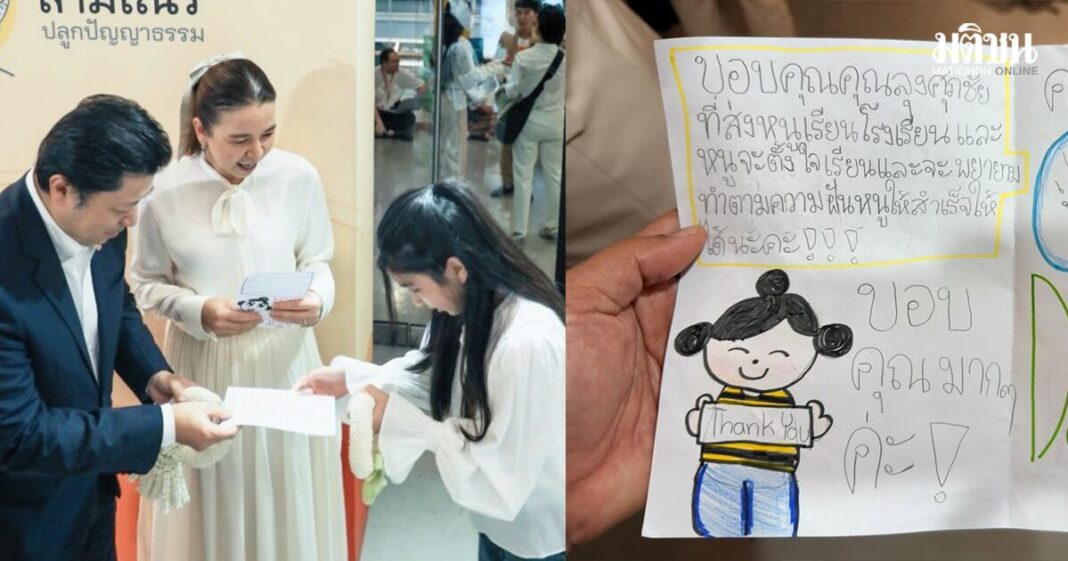 ปลูกปัญญาธรรม
มติชน
MATICHON ONLINE
ขอบคุณคุณลุงศุภชัย
ที่ส่งหนูเรียนโรงเรียน และ
หนูจะตั้งใจเรียนและจะ พยายาม
ทำตามความฝันหนูให้สำเร็จให้
ได้นะคะ!!!
ขอบ
คุณมากๆ
ค่ะ!
Thank You